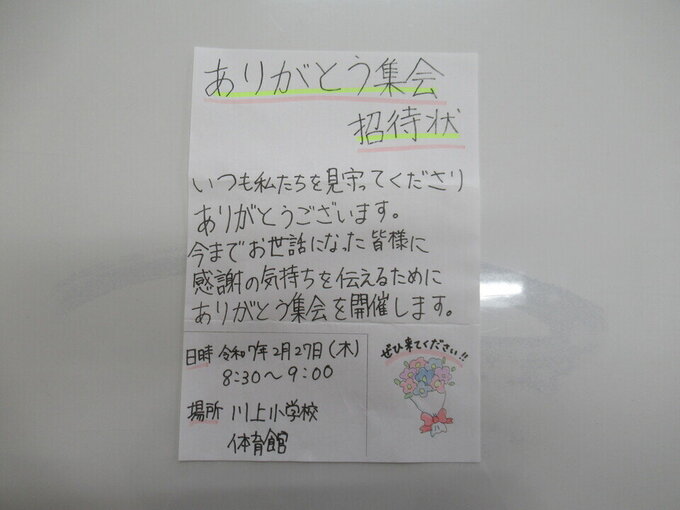 ありがとう集会
招待状
いつも私たちを見守ってくださり
ありがとうございます。
今までお世話になった皆様に
感謝の気持ちを伝えるために
ありがとう集会を開催します。
日時 令和7年2月27日(木)
8:30～9:00
場所 川上小学校
体育館
ぜひ来てください!!